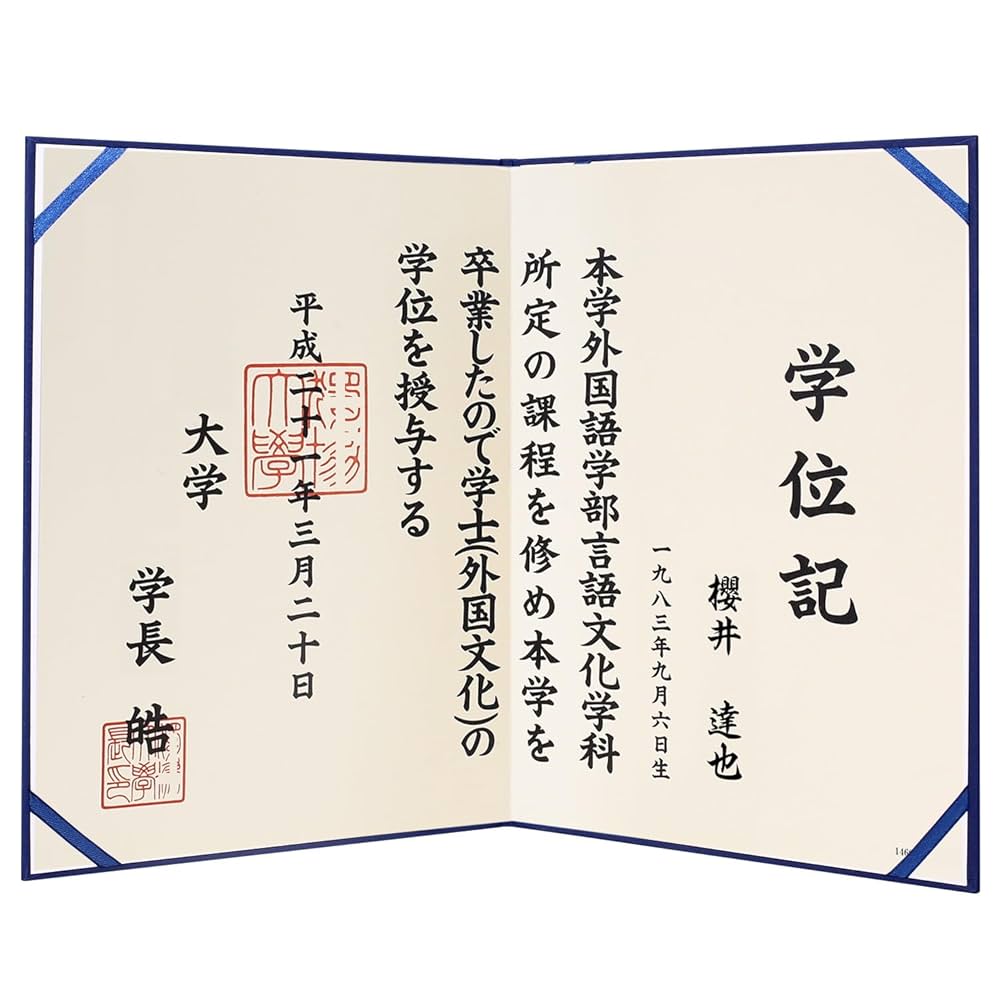 学位記
櫻井 達也
一九八三年九月六日生
本学外国語学部言語文化学科
所定の課程を修め本学を
卒業したので学士(外国文化)の
学位を授与する
平成二十一年三月二十日
大学
学長 皓